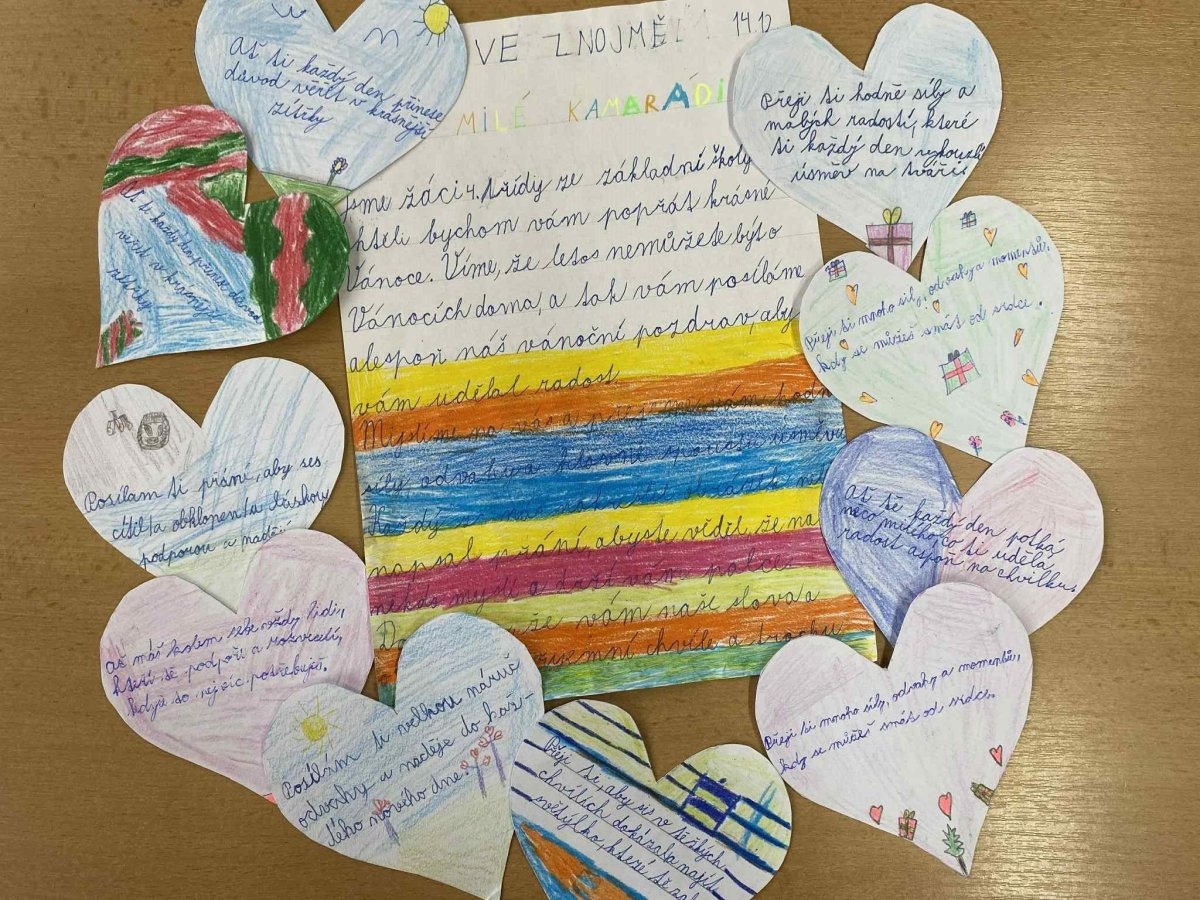 VE ZNOJMĚ 14.12
MILÉ KAMARÁDI
Jsme žáci 4. třídy ze základní školy
chtěli bychom vám popřát krásné
Vánoce. Víme, že letos nemůžete být o
Vánocích doma, a tak vám posíláme
alespoň náš vánoční pozdrav, aby
vám udělal radost.
Myslíme na vás a přejeme vám hodně
síly, odvahu a hlavně spoustu úsměvů
Každý z nás
napsal přání, abyste věděl, že na
někdo myslí a drží vám palce
vám naše slova
chvíle a trochu
Ať ti každý den přinese
důvod věřit v krásnější
zítřky
Ať ti každý přinese důvod
věřit v krásnější
Posílám ti přání, aby ses
cítil/a obklopen/a láskou,
podporou a nadějí
Ať máš kolem sebe vždy lidi,
kteří tě podpoří a rozveselí,
když to nejvíc potřebuješ.
Posílám ti velkou náruč
odvahy a naděje do kaž-
dého nového dne.
Přeji ti, aby ses v těžkých
chvílích dokázala najít
světýlko, které tě
Přeji ti hodně síly a
malých radostí, které
ti každý den vykouzlí
úsměv na tváři
Přeji ti mnoho síly, odvahy a momentů,
kdy se můžeš smát od srdce.
Ať tě každý den potká
něco milého, co ti udělá
radost aspoň na chvilku.
Přeji ti mnoho síly, odvahy a momentů,
kdy se můžeš smát od srdce.